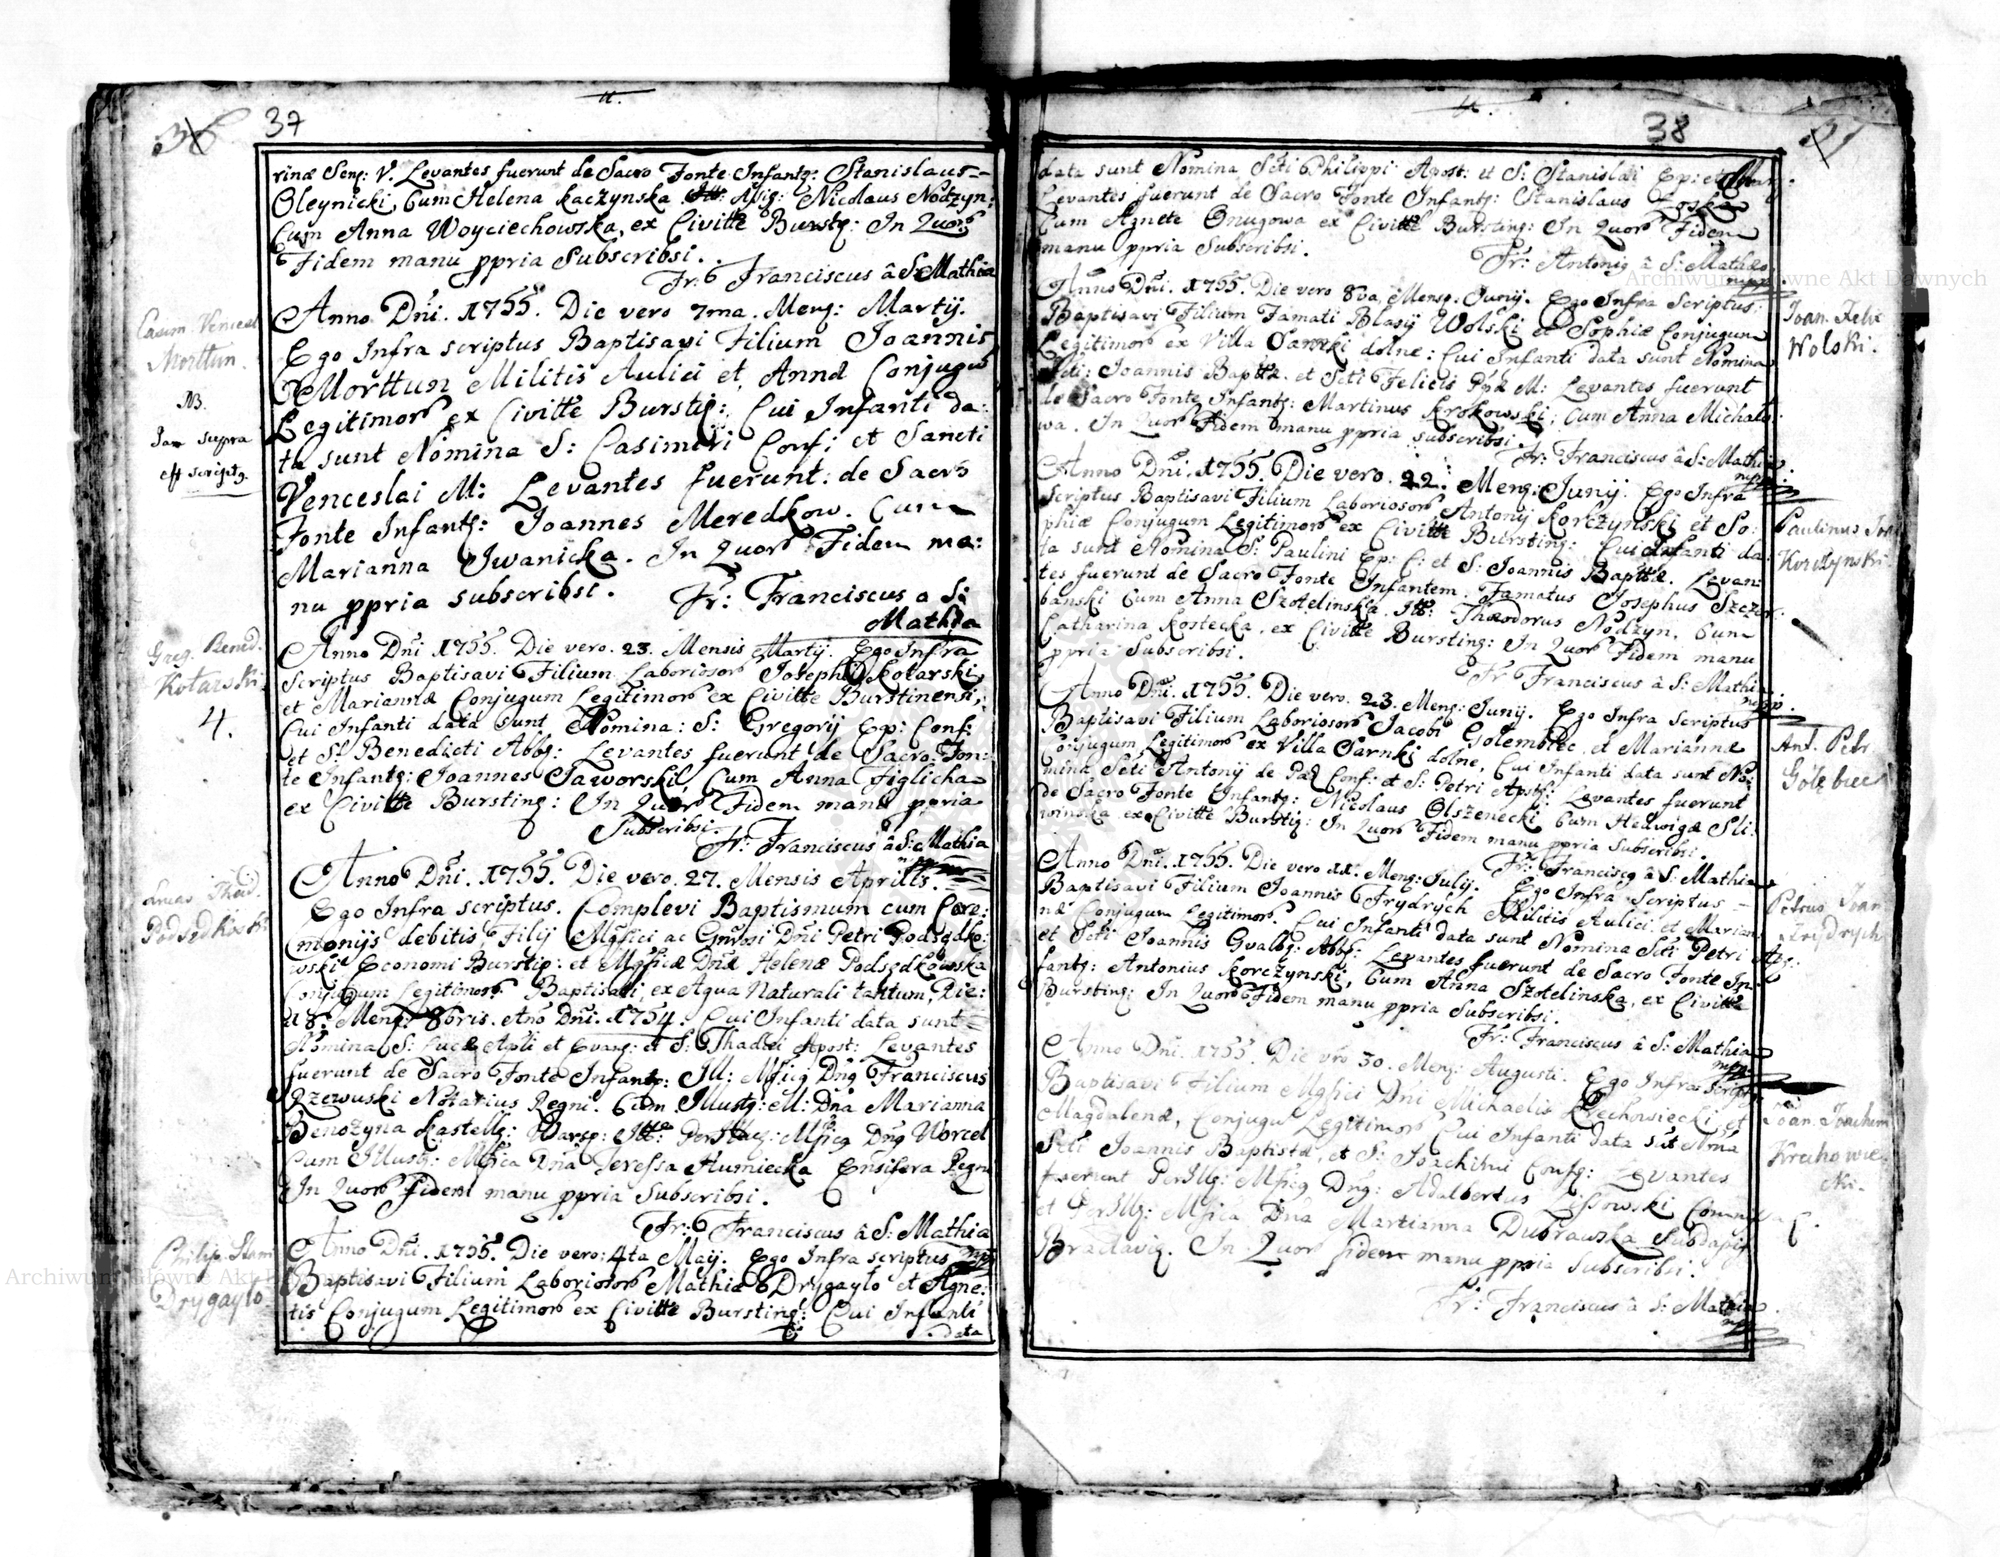 36 37
rinæ Seng: V. Levantes fuerunt de Sacro Fonte Infantę: Stanislaus
Oleynicki, Cum Helena Kaczynska Itt: Assig: Nicolaus Nodzyn,
Cum Anna Woyciechowska, ex Civitte Burstę: In Quorũ
Fidem manu ppria Subscribsi.
Fr: Franciscus â S: Mathia
Casim. Vencesl
Morttun.
NB.
Jam supra
est scriptą
Anno Dñi. 1755. Die vero 7ma. Mensę: Martij.
Ego Infra scriptus Baptisavi Filium Joannis
Morttun Militis Aulici et Annæ Conjugũ
Legitimorũ ex Civitte Burstię: Cui Infanti da:
ta sunt Nomina S: Casimiri Conf: et Sancti
Venceslai M: Levantes fuerunt: de Sacro
Fonte Infantę: Joannes Meredkow. Cum
Marianna Jwanicka. In Quorũ Fidem ma:
nu ppria subscribsi.
Fr: Franciscus a S:
Mathia
Greg. Bened.
Kotarski
4.
Anno Dñi 1755. Die vero. 23. Mensis Martij. Ego Infra
scriptus Baptisavi Filium Laboriosorũ Josephi Kotarski,
et Mariannæ Conjugum Legitimorũ ex Civitte Burstinensi,
Cui Infanti data sunt Nomina: S: Gregorij Ep: Conf:
et S: Benedicti Abbę: Levantes fuerunt de Sacro Fon:
te Infantę: Joannes Jaworski, Cum Anna Figlicha
ex Civitte Burstinę: In Quorũ Fidem manu ppria
Subscribsi.
Fr: Franciscus â S: Mathia
Lucas Thad.
Podsedkoski
Anno Dñi. 1755. Die vero. 27. Mensis Aprilis.
Ego Infra scriptus. Complevi Baptismum cum Cere:
monijs debitis, Filij Mgfici ac Gñrosi Dñi Petri Podsędko:
wski Economi Burstię: et Mgficæ Dñæ Helenæ Podsędkowska
Conjugum Legitimorũ Baptisati, ex Aqua Naturali tantum, Die:
18. Mensę: 8bris. Año Dñi. 1754. Cui Infanti data sunt
Nomina S: Lucæ Apli et Evang: et S: Thadei Apost: Levantes
fuerunt de Sacro Fonte Infantę: Ill: Mficą Dnę Franciscus
Rzewuski Notarius Regni. Cum Illustę: M: Dña Marianna
Benozyna Kastellę: Warsę: Itt: PerIllusę: Mficą Dnę Worcel
Cum Illustę: Mfica Dña Teressa Humiecka Ensifera Regni
In Quorũ fidem manu ppria Subscribsi.
Fr: Franciscus â S: Mathia
Philip. Stani
Drygaylo
Anno Dñi. 1755. Die vero: 4ta Maij. Ego Infra scriptus
Baptisavi Filium Laboriosorũ Mathiæ Drygaylo et Agne:
tis Conjugum Legitimorũ ex Civitte Burstinę: Cui Infanti
data
38 37
data sunt Nomina Scti Philippi Apost: et S: Stanislai Ep: et Mar:
Levantes fuerunt de Sacro Fonte Infantę: Stanislaus
Cum Agnete Onugowa ex Civitte Burstinę: In Quorũ Fidem
manu ppria Subscribsi.
Fr: Antonię â S: Mathæo
mpp
Joan. Felix
Wolski.
Anno Dñi. 1755. Die vero 8va. Mensę: Junij. Ego Infra Scriptus
Baptisavi Filium Famati Blasij Wolski et Sophiæ Conjugum
Legitimorũ ex Villa Sarnki dolne: Cui Infanti data sunt Nomina
Scti: Joannis Baptæ. et Scti Felicis Ppæ M: Levantes fuerunt
de Sacro Fonte Infantę: Martinus Krokowski, Cum Anna Michalo:
wa. In Quorũ Fidem manu ppria subscribsi.
Fr: Franciscus â S: Mathia
mpp
Paulinus Joan
Korczynski.
Anno Dñi. 1755. Die vero. 22. Mensę: Junij. Ego Infra
Scriptus Baptisavi Filium Laboriosorũ Antonij Korczynski et So:
phiæ Conjugum Legitimorũ ex Civitte Burstinę: Cui Infanti da:
ta sunt Nomina S: Paulini Ep: C: et S: Joannis Baptæ. Levan:
tes fuerunt de Sacro Fonte Infantem. Famatus Josephus Szczer:
banski Cum Anna Szotelinska. Itt: Theodorus Nodzyn. Cum
Catharina Kostecka, ex Civitte Burstinę: In Quorũ Fidem manu
ppria Subscribsi.
Fr Franciscus â S: Mathia
mpp.
Ant. Petr.
Gołębiec
Anno Dñi. 1755. Die vero. 23. Mensę: Junij. Ego Infra scriptus
Baptisavi Filium Laboriosorũ Jacobi Golembiec, et Mariannæ
Conjugum Legitimorũ ex Villa Sarnki dolne, Cui Infanti data sunt No:
mina Scti Antonij de Pad Conf: et S: Petri Apst: Levantes fuerunt
de Sacro Fonte Infantę: Nicolaus Olszenecki Cum Hedwigæ Sli:
winska ex Civitte Burstię: In Quorũ Fidem manu ppria Subscribsi.
Fr: Franciscę â S: Mathia
Petrus Joan
Frydrych
Anno Dñi. 1755. Die vero 11. Mensę: Julij. Ego Infra Scriptus
Baptisavi Filium Joannis Frydrych Militis Aulici, et Marian:
næ Conjugum Legitimorũ. Cui Infanti data sunt Nomina Scti Petri Ap:
et Scti Joannis Gvalbę: Abbę: Levantes fuerunt de Sacro Fonte In:
fantę: Antonius Korczynski, Cum Anna Szotelinska, ex Civitte
Burstinę: In Quorũ Fidem manu ppria Subscribsi.
Fr: Franciscus â S: Mathia
mpp
Joan. Joachim
Krechowie
cki.
Anno Dñi. 1755. Die vrõ 30. Mensę: Augusti. Ego Infra Scriptę
Baptisavi Filium Mgfici Dñi Michaelis Krechowiecki et
Magdalenæ, Conjugũ Legitimorũ Cui Infanti data sũt Nõna
Scti Joannis Baptistæ, et S: Joachimi Confę: Levantes
fuerunt PerIllę: Mficą Dnę: Adalbertus Lissowski
et PerIllę: Mfica Dña Martianna Dubrawska Subdapif
Braclavię. In Quorũ fidem manu ppria Subscribsi.
Fr: Franciscus â S: Mathia
mpp
Archiwum Główne Akt Dawnych
Archiwum Główne Akt Dawnych